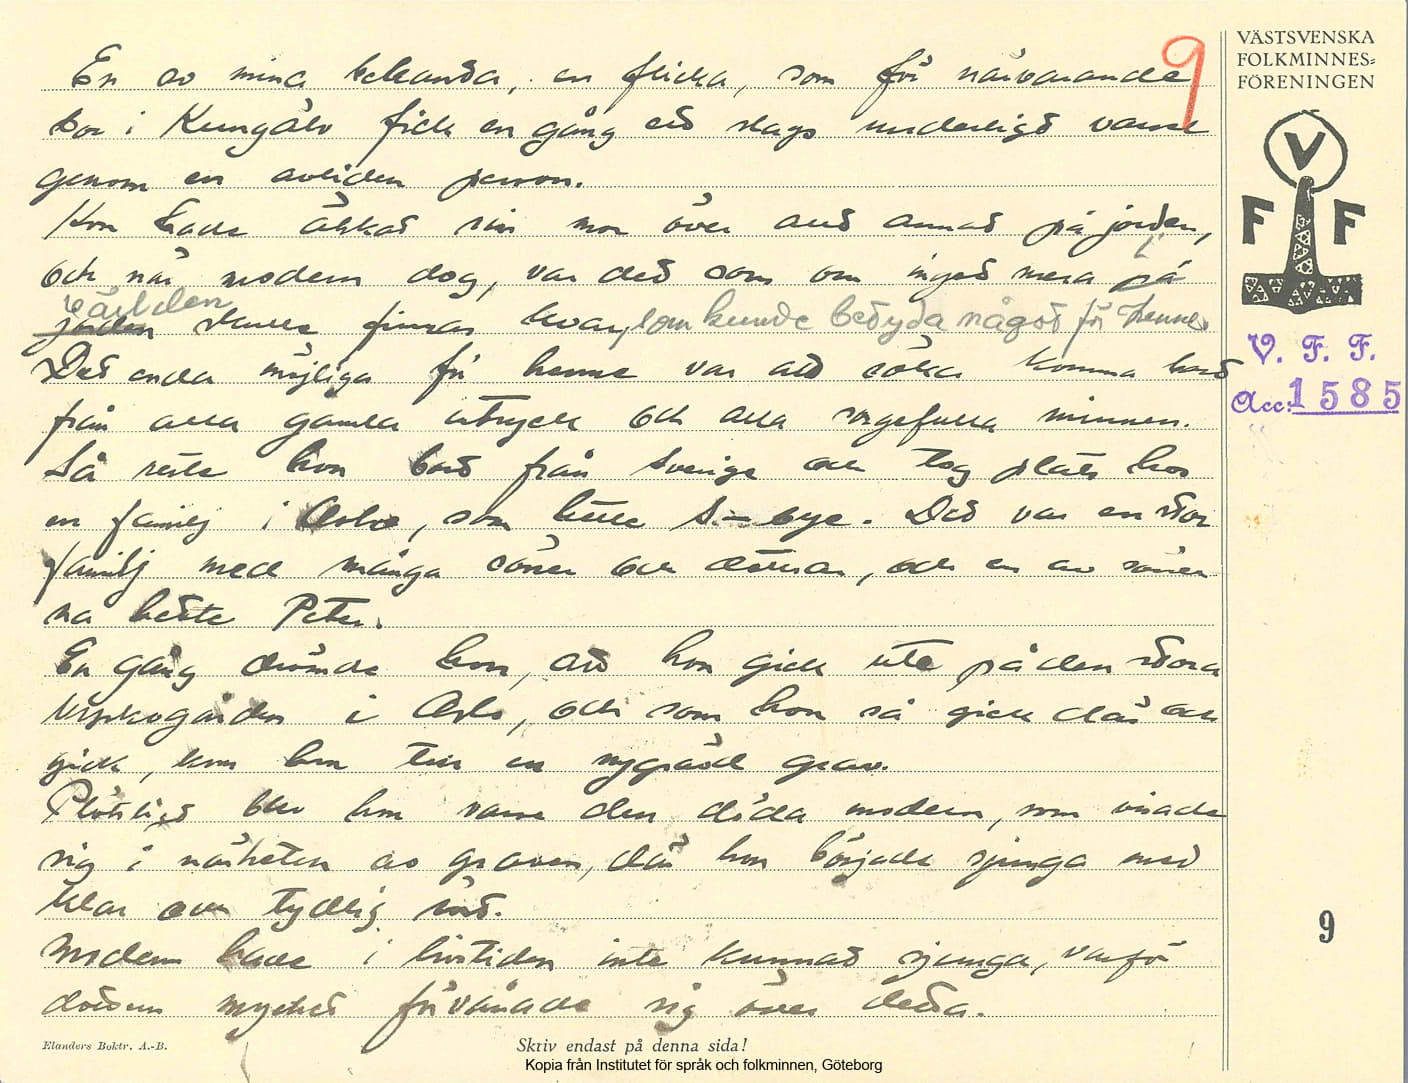 9
VÄSTSVENSKA
FOLKMINNES=
FÖRENINGEN
V
F F
V. F. F.
Acc: 1585
En av mina bekanta, en flicka, som för närvarande
bor i Kungälv fick en gång ett slags underligt varsel
genom en avliden person.
Hon hade älskat sin mor över allt annat på jorden,
och när modern dog, var det som om inget mera på
världen
jorden skulle finnas kvar, som kunde betyda något för henne.
Det enda möjliga för henne var att söka komma bort
från alla gamla intryck och alla sorgefulla minnen.
Så reste hon bort från Sverige och tog plats hos
en familj i Oslo, som hette S.-bye. Det var en stor
familj med många söner och döttrar, och en av söner
na hette Peter.
En gång drömde hon, att hon gick ute på den stora
kyrkogården i Oslo, och som hon så gick där och
gick, kom hon till en nygrävd grav.
Plötsligt blev hon varse den döda modern, som visade
sig i närheten av graven, där hon började sjunga med
klar och tydlig röst.
Modern hade i livstiden inte kunnat sjunga, varför
dottern mycket förvånade sig över detta.
9
Elanders Boktr. A.-B.
Skriv endast på denna sida!
Kopia från Institutet för språk och folkminnen, Göteborg